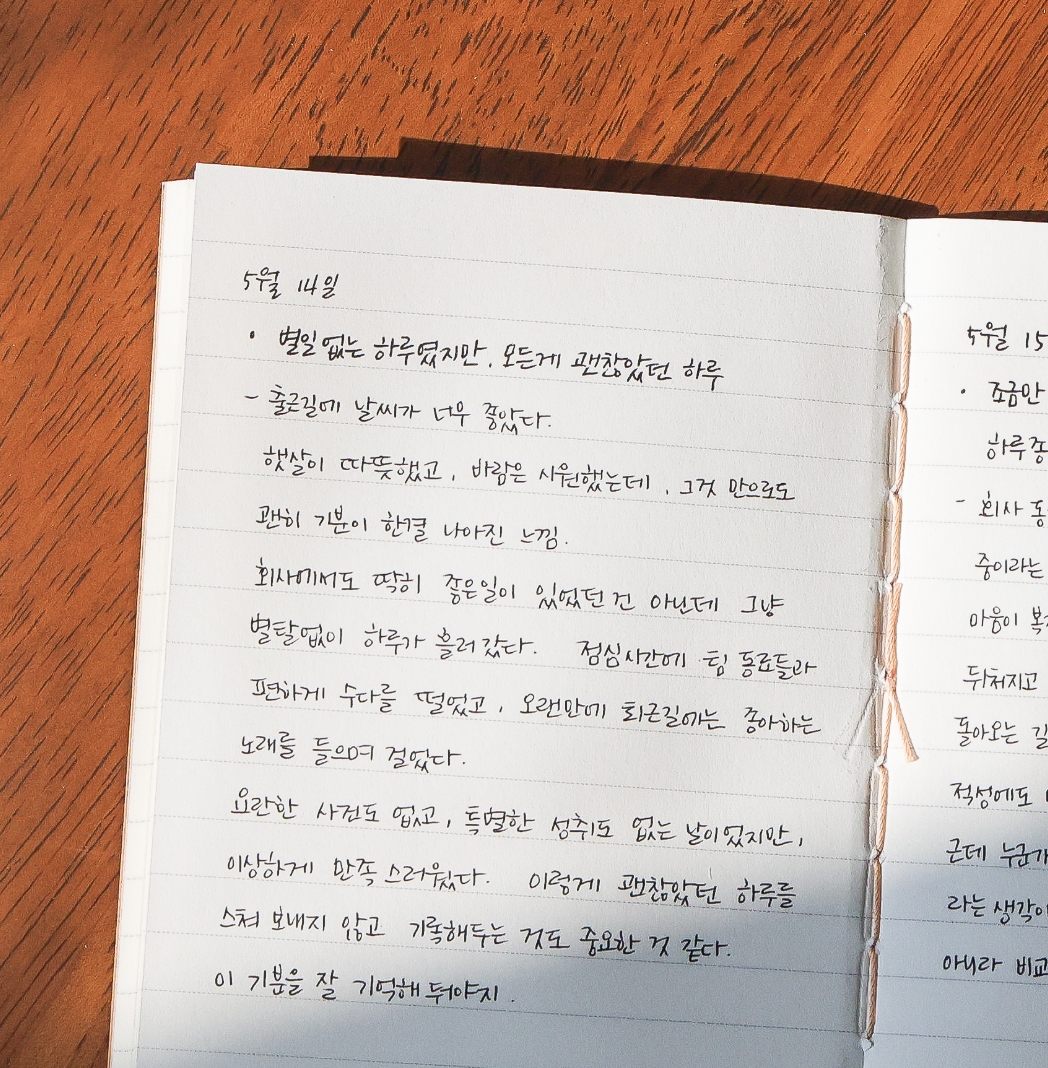 5월 14일
• 별일 없는 하루였지만, 모든게 괜찮았던 하루
- 출근길에 날씨가 너무 좋았다.
햇살이 따뜻했고, 바람은 시원했는데, 그것 만으로도
괜히 기분이 한결 나아진 느낌.
회사에서도 딱히 좋은일이 있었던 건 아닌데 그냥
별탈없이 하루가 흘러갔다. 점심시간에 팀 동료들과
편하게 수다를 떨었고, 오랜만에 퇴근길에는 좋아하는
노래를 들으며 걸었다.
요란한 사건도 없고, 특별한 성취도 없는 날이었지만,
이상하게 만족스러웠다. 이렇게 괜찮았던 하루를
스쳐 보내지 않고 기록해두는 것도 중요한 것 같다.
이 기분을 잘 기억해 둬야지.
5월 15
• 조금만
하루종
- 회사 동
중이라는
마음이 복
뒤처지고
돌아오는 길
적성에도
근데 누군가
라는 생각이
아니라 비교